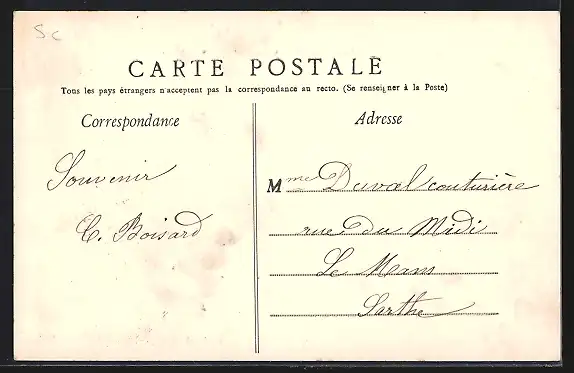 Sc
CARTE POSTALE
Tous les pays étrangers n'acceptent pas la correspondance au recto. (Se renseigner à la Poste)
Correspondance
Adresse
Souvenir
C. Boisard
Mme Duval couturière
rue du Midi
Le Mans
Sarthe